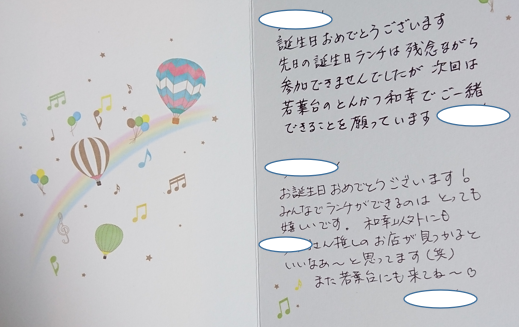 誕生日おめでとうございます
先日の誕生日ランチは残念ながら
参加できませんでしたが 次回は
若葉台のとんかつ和幸でご一緒
できることを願っています
お誕生日おめでとうございます!
みんなでランチができるのは とっても
嬉しいです。 和幸以外にも
さん推しのお店が見つかると
いいなあ〜と思ってます(笑)
また若葉台にも来てね〜♡